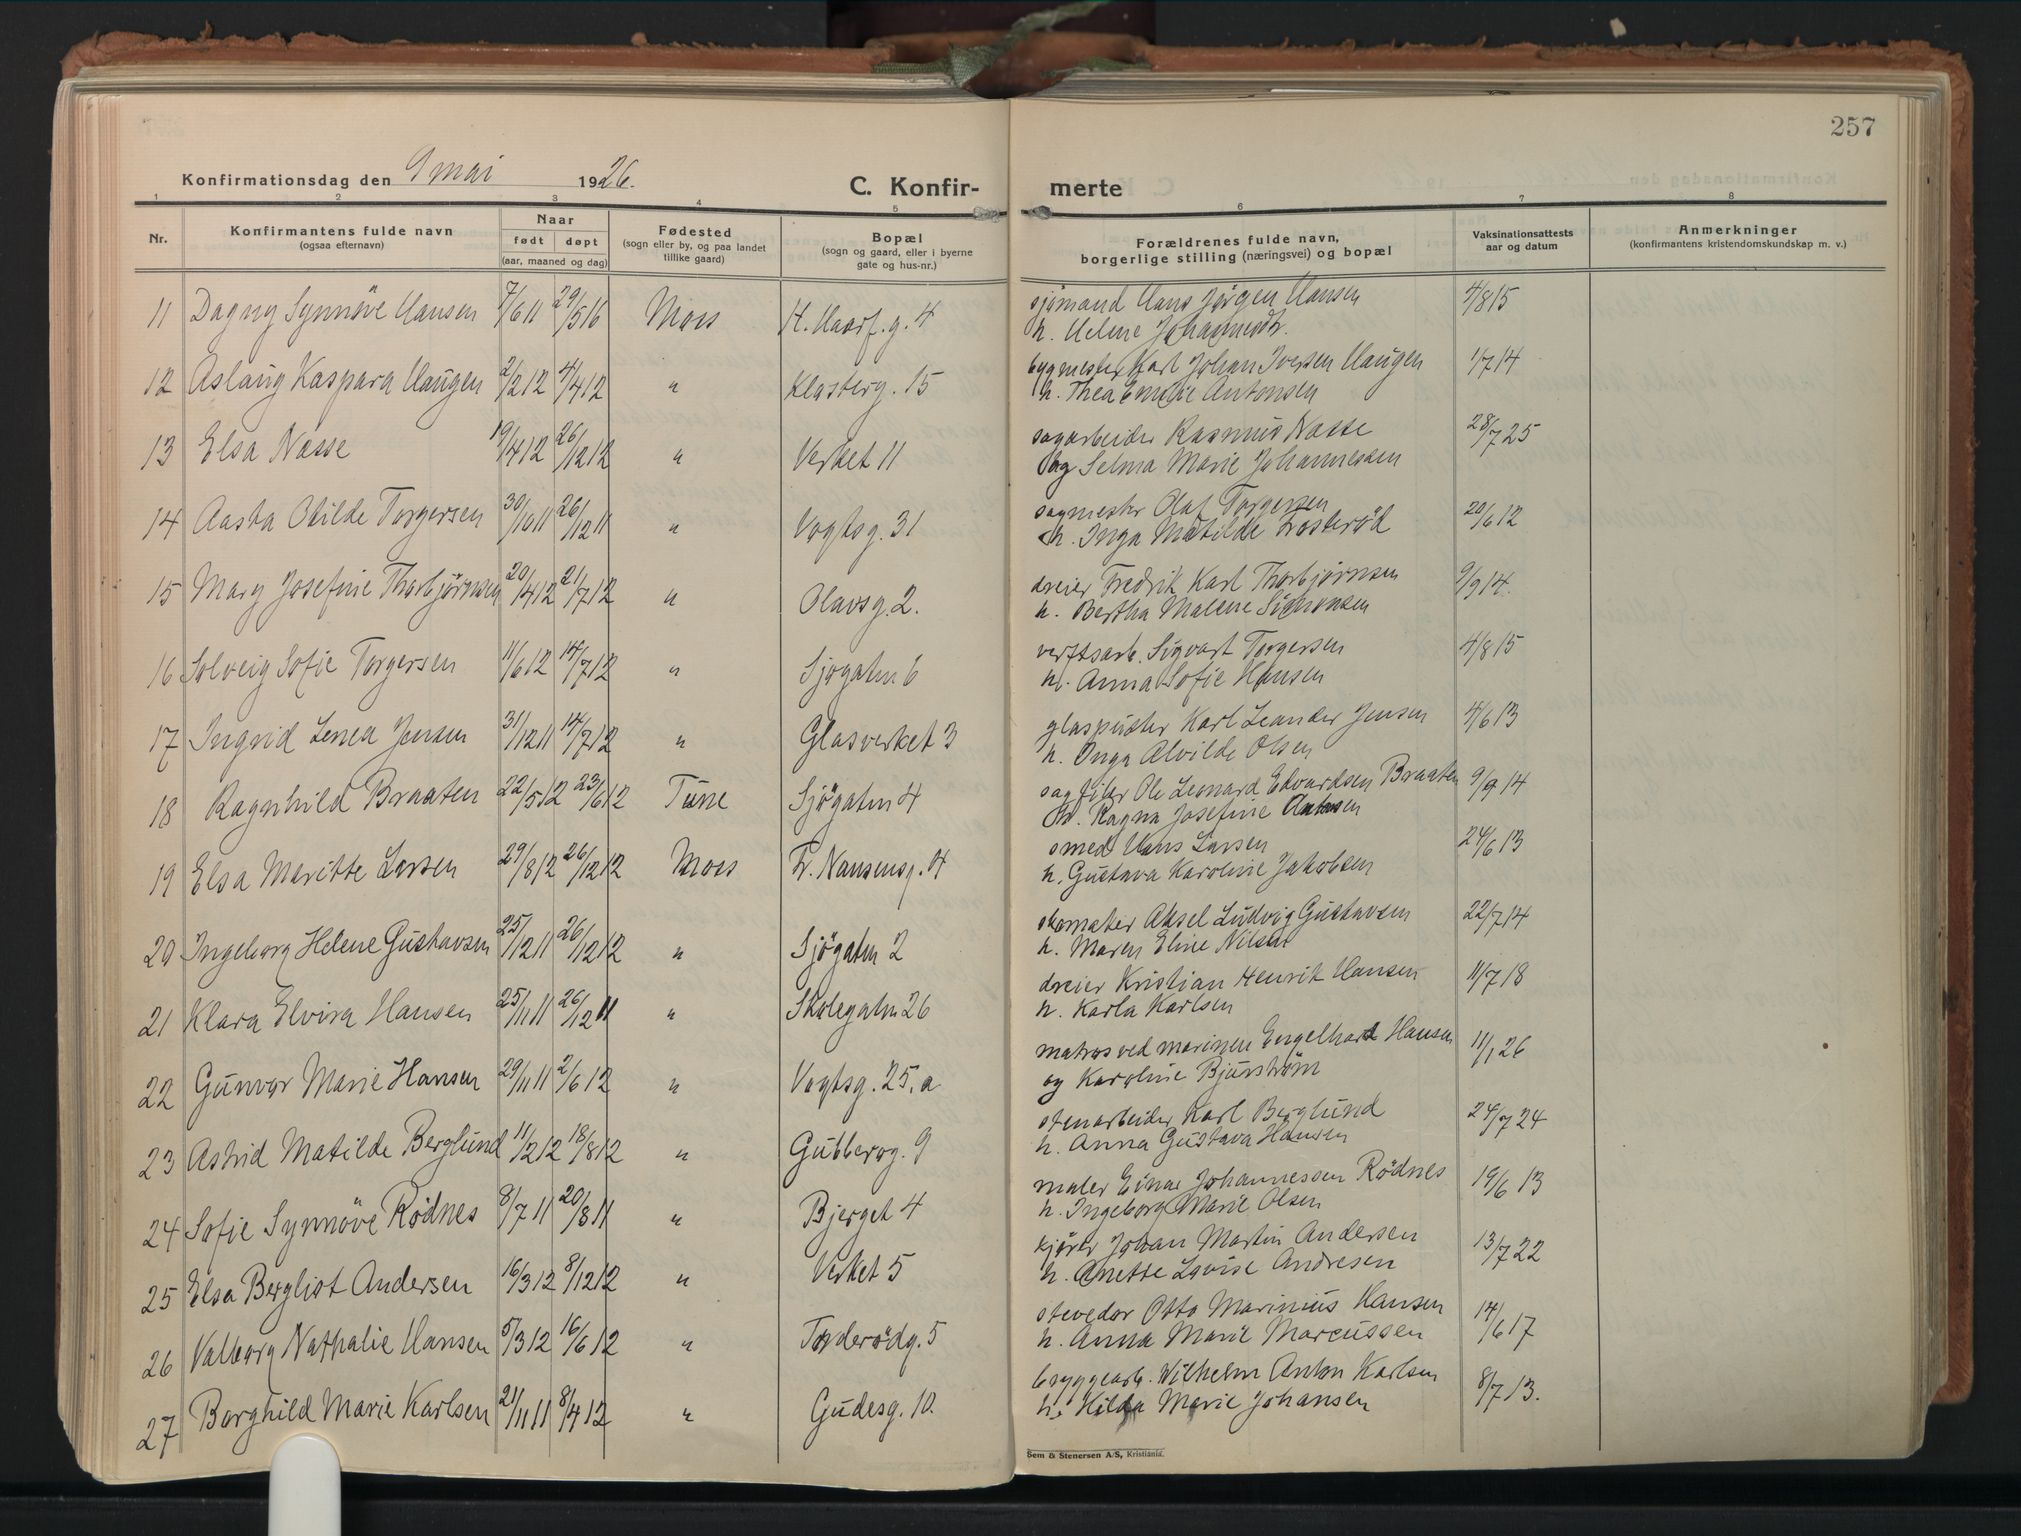 257
Konfirmationsdag den 9 mai 1926.
C. Konfir- merte
1 2 3 4 5 6 7 8
Nr.
Konfirmantens fulde navn
(ogsaa efternavn)
Naar
født døpt
(aar, maaned og dag)
Fødested
(sogn eller by, og paa landet
tillike gaard)
Bopæl
(sogn og gaard, eller i byerne
gate og hus-nr.)
Forældrenes fulde navn,
borgerlige stilling (næringsvei) og bopæl
Vaksinationsattests
aar og datum
Anmerkninger
(konfirmantens kristendomskundskap m. v.)
11 Dagny Synnöve Hansen 7/6 11 29/5 16 Moss H. Haarf.g. 4 sjömand Hans Jörgen Hansen 4/8 15
h. Helene
12 Aslaug Kaspara Haugen 2/2 12 4/4 12 " 15 bygmester Karl Johan Iversen Haugen 1/7 14
h. Thea Emilie Antonsen
13 Elsa Næsse 19/4 12 26/12 12 " Verket 11 sagarbeider Rasmus Næsse 28/7 25
og Selma Marie Johannessen
14 Aasta Otilde Torgersen 30/10 11 26/12 11 " Vogtsg. 31 sagmester Olaf Torgersen 20/6 12
h. Inga Matilde Trosteröd
15 Mary Josefine Thorbjörnsen 20/4 12 21/7 12 " Olavsg. 2. dreier Fredrik Karl Thorbjörnsen 9/9 14.
h. Bertha Malene Simonsen
16 Solveig Sofie Torgersen 11/6 12 14/7 12 " Sjøgaten 6 verftsarb. Sigvart Torgersen 4/8 15
h. Anna Sofie Hansen
17 Ingrid Lenea Jensen 31/12 11 14/7 12 " Glasverket 3 glaspuster Karl Leander Jensen 4/6 13
h. Inga Alvilde Olsen
18 Ragnhild Braaten 22/5 12 23/6 12 Tune Sjögaten 4 sagfiler Ole Leonard Edvardsen Braaten 9/9 14
h. Ragna Josefine Antonsen
19 Elsa Maritte Larsen 29/8 12 26/12 12 Moss Fr. Nansensg. 4 smed Hans Larsen 24/6 13
h. Gustava Karoline Jakobsen
20 Ingeborg Helene Gustavsen 25/12 11 26/12 12 " Sjögaten 2 skomaker Aksel Ludvig Gustavsen 22/7 14
h. Maren Eline Nilsen
21 Klara Elvira Hansen 25/11 11 26/12 11 " Skolegaten 26 dreier Kristian Henrik Hansen 11/7 18
h. Karla Karlsen
22 Gunvor Marie Hansen 29/11 11 2/6 12 " Vogtsg. 25.a matros ved marinen Engelhart Hansen 11/1 26
og Karoline Bjurström
23 Astrid Matilde Berglund 11/2 12 18/8 12 " Gubberog. 9 stenarbeider Karl Berglund 24/7 24
h. Anna Gustava Hansen
24 Sofie Synnöve Rödnes 8/7 11 20/8 11 " Bjerget 4 maler Einar Johannessen Rödnes 19/6 13
h. Ingeborg Marie Olsen
25 Elsa Bergliot Andersen 16/3 12 8/12 12 " Verket 5 kjörer Johan Martin Andersen 13/7 22
h. Anette Lovise Andresen
26 Valborg Nathalie Hansen 5/3 12 16/6 12 " Tonderödg. 5 stevedor Otto Marinius Hansen 14/6 17
h. Anna Marie Marcussen
27 Borghild Marie Karlsen 21/11 11 8/4 12 " Gudesg. 10. bryggearb. Wilhelm Anton Karlsen 8/7 13.
h. Hilda Marie Johansen
Sem & Stenersen A/S, Kristiania.